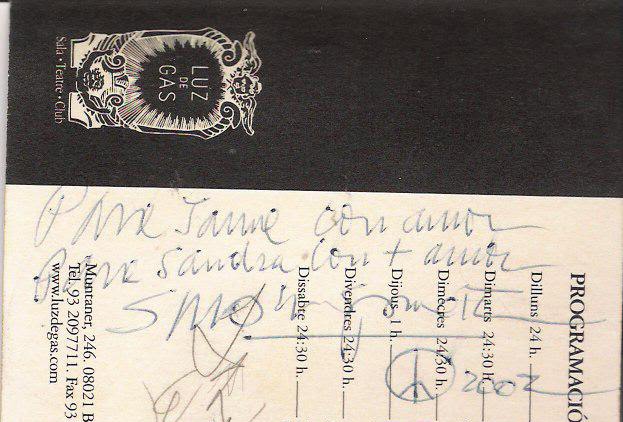 LUZ
DE
GAS
Sala • Teatre • Club
Para Jaume con amor
Para Sandra con + amor
2002
PROGRAMACIÓ
Dilluns 24 h.
Dimarts 24:30 h.
Dimecres 24:30 h.
Dijous 1 h.
Divendres 24:30 h.
Dissabte 24:30 h.
Montaner, 246. 08021 B
Tel. 93 2097711. Fax 93
www.luzdegas.com